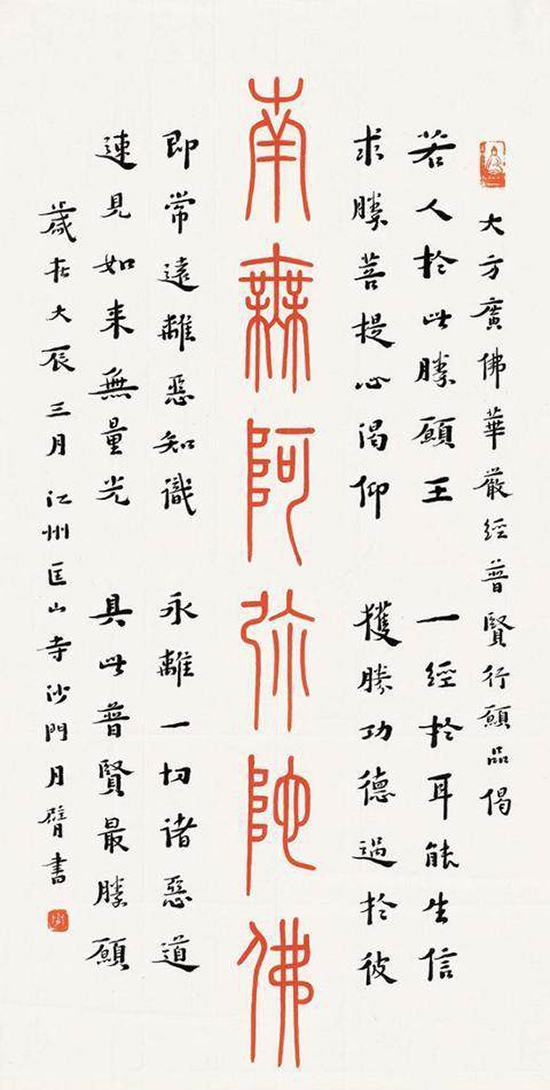 大方廣佛華嚴經普賢行願品偈
若人於此勝願王　一經於耳能生信
求勝菩提心渴仰　獲勝功德過於彼
南無阿弥陀佛
即常遠離惡知識　永離一切諸惡道
速見如來無量光　具此普賢最勝願
歲在大辰三月　江州匡山寺沙門月臂書